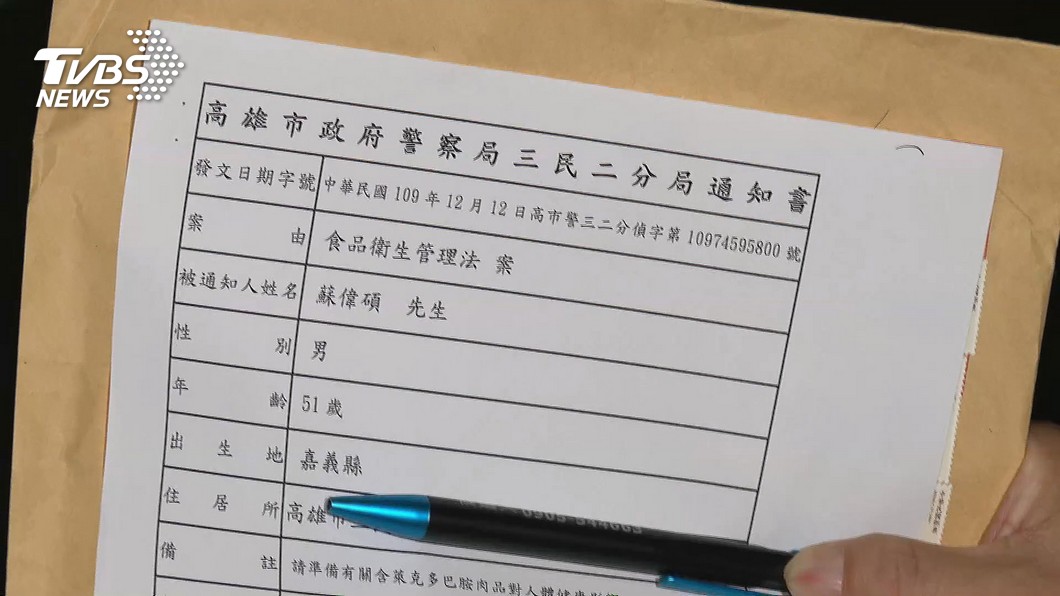 TVBS
NEWS
高雄市政府警察局三民二分局通知書
發文日期字號 中華民國109年12月12日高市警三二分偵字第10974595800號
案由 食品衛生管理法 案
被通知人姓名 蘇偉碩 先生
性別 男
年齡 51歲
出生地 嘉義縣
住居所 高雄市三
備註 請準備有關含萊克多巴胺肉品對人體健康影響